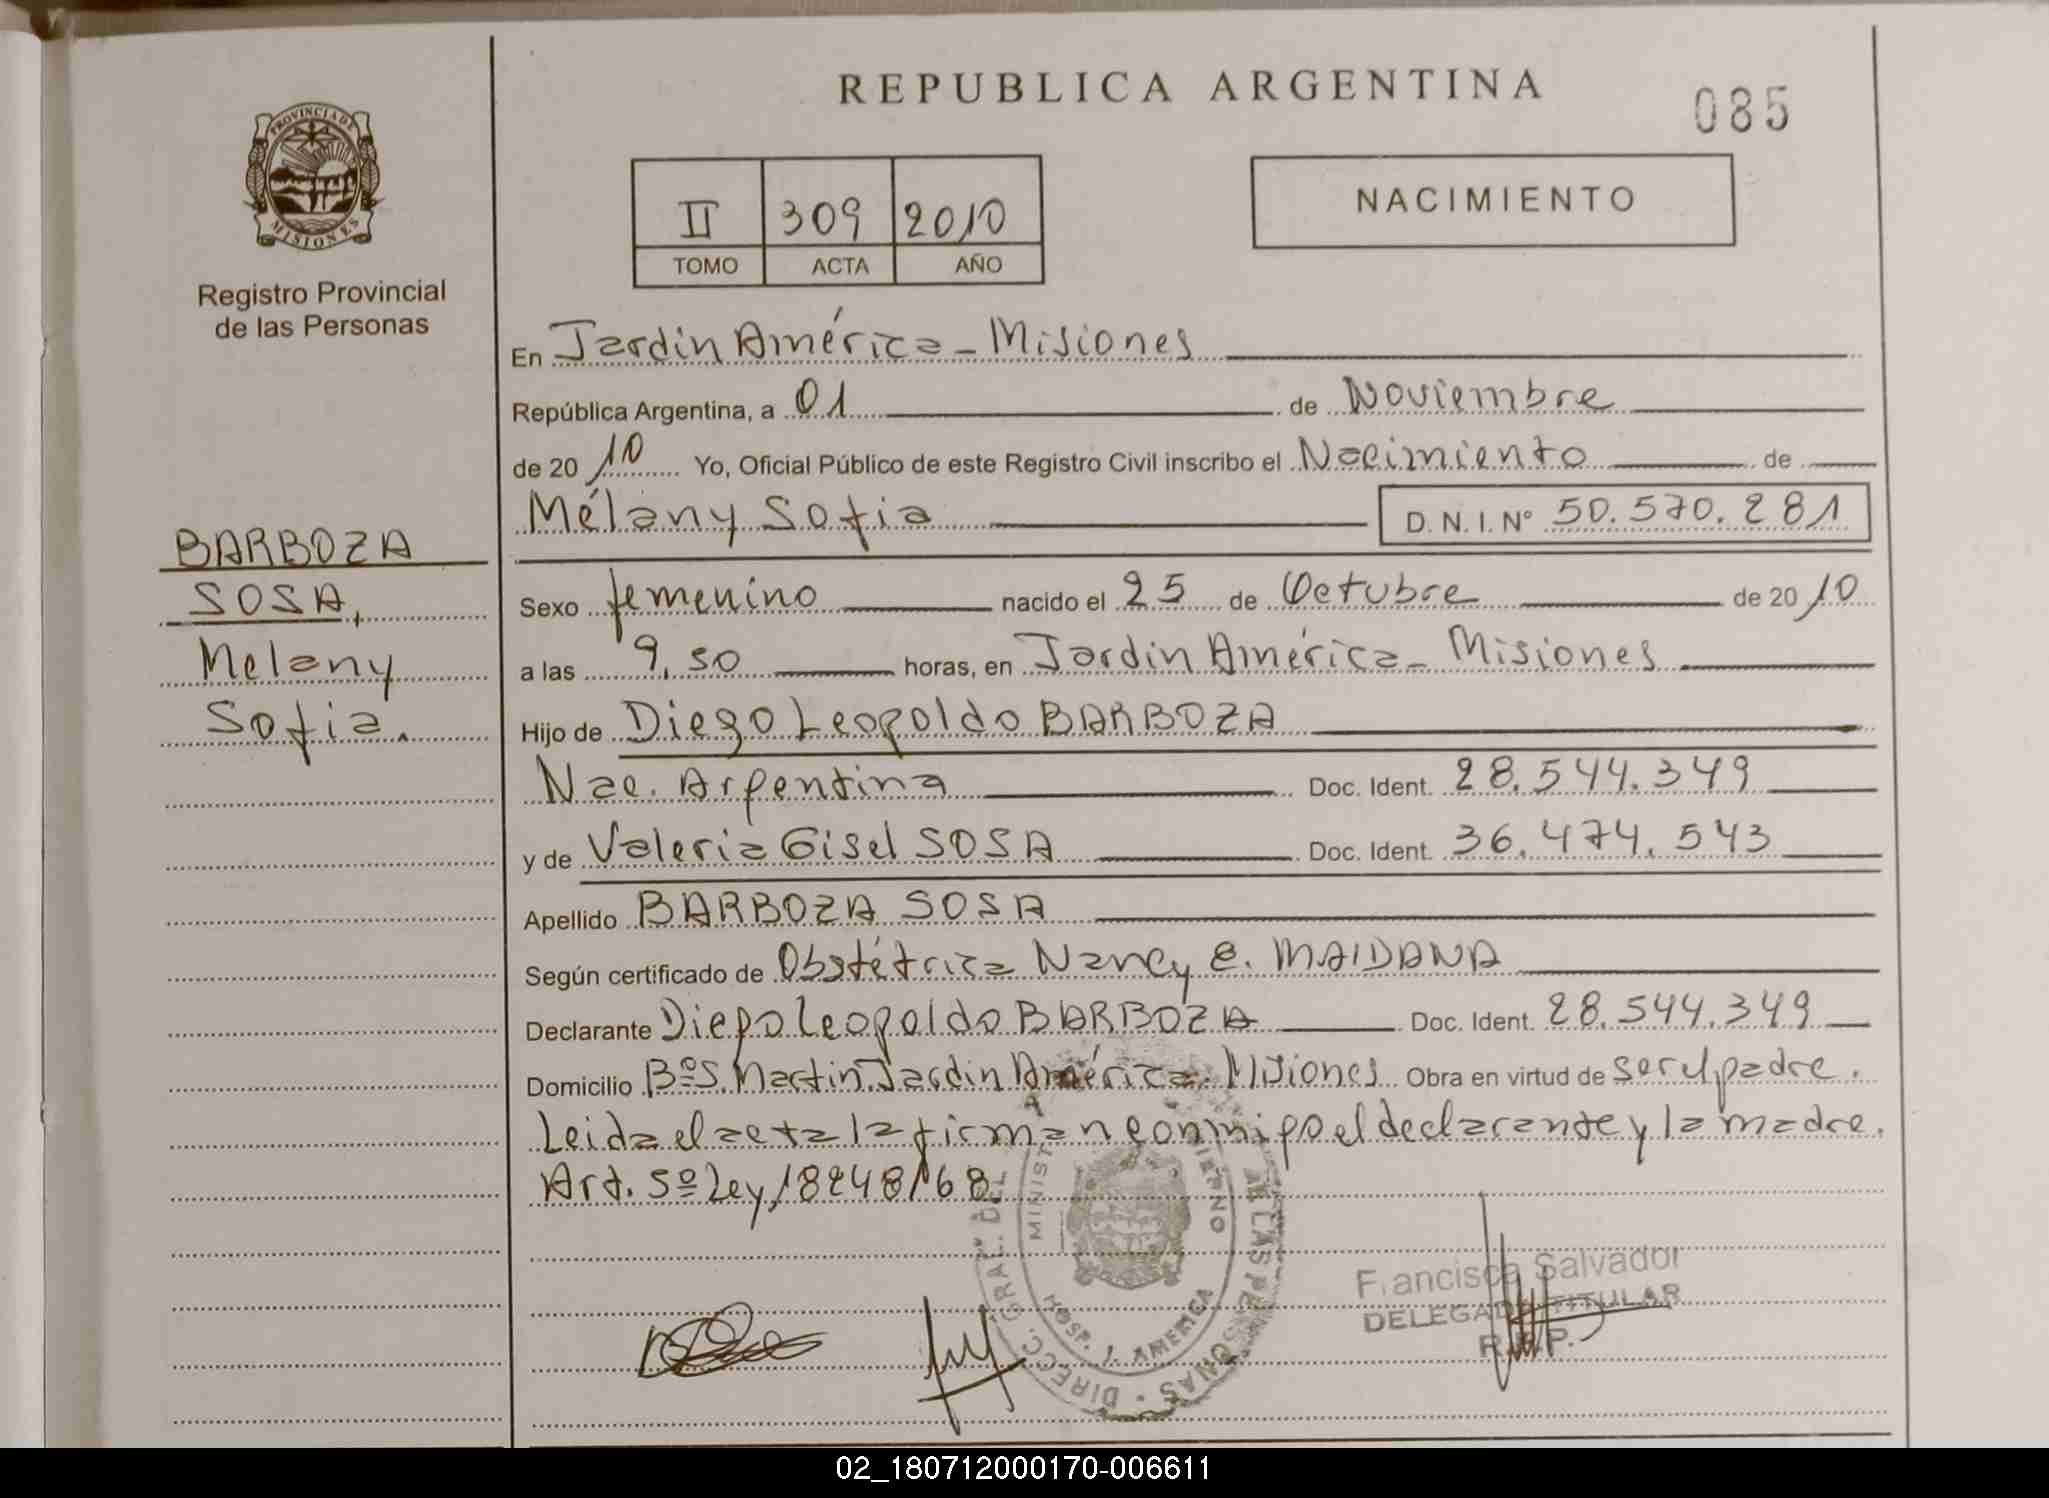 REPUBLICA ARGENTINA
085
PROVINCIA DE
MISIONES
Registro Provincial
de las Personas
II 309 2010
TOMO ACTA AÑO
NACIMIENTO
En Jardín América - Misiones
República Argentina, a 01 de Noviembre
de 2010 Yo, Oficial Público de este Registro Civil inscribo el Nacimiento de
Mélany Sofia D.N.I. Nº 50.570.281
BARBOZA
SOSA,
Melany
Sofia.
Sexo femenino nacido el 25 de Octubre de 2010
a las 9,50 horas, en Jardín América - Misiones
Hijo de Diego Leopoldo BARBOZA
Nac. Argentina Doc. Ident. 28.544.349
y de Valeria Gisel SOSA Doc. Ident. 36.474.543
Apellido BARBOZA SOSA
Según certificado de Obstétrica Nancy E. MAIDANA
Declarante Diego Leopoldo BARBOZA Doc. Ident. 28.544.349
Domicilio Bº S. Martin. Jardín América. Misiones Obra en virtud de ser el padre.
Leida el acta la firman conmigo el declarante y la madre.
Art. 5º Ley 18248/68.
DIRECC. GRAL. DEL DE LAS PERSONAS
HOSP. J. AMERICA
Francisca Salvador
DELEGADA TITULAR
R.P.P.
02_180712000170-006611